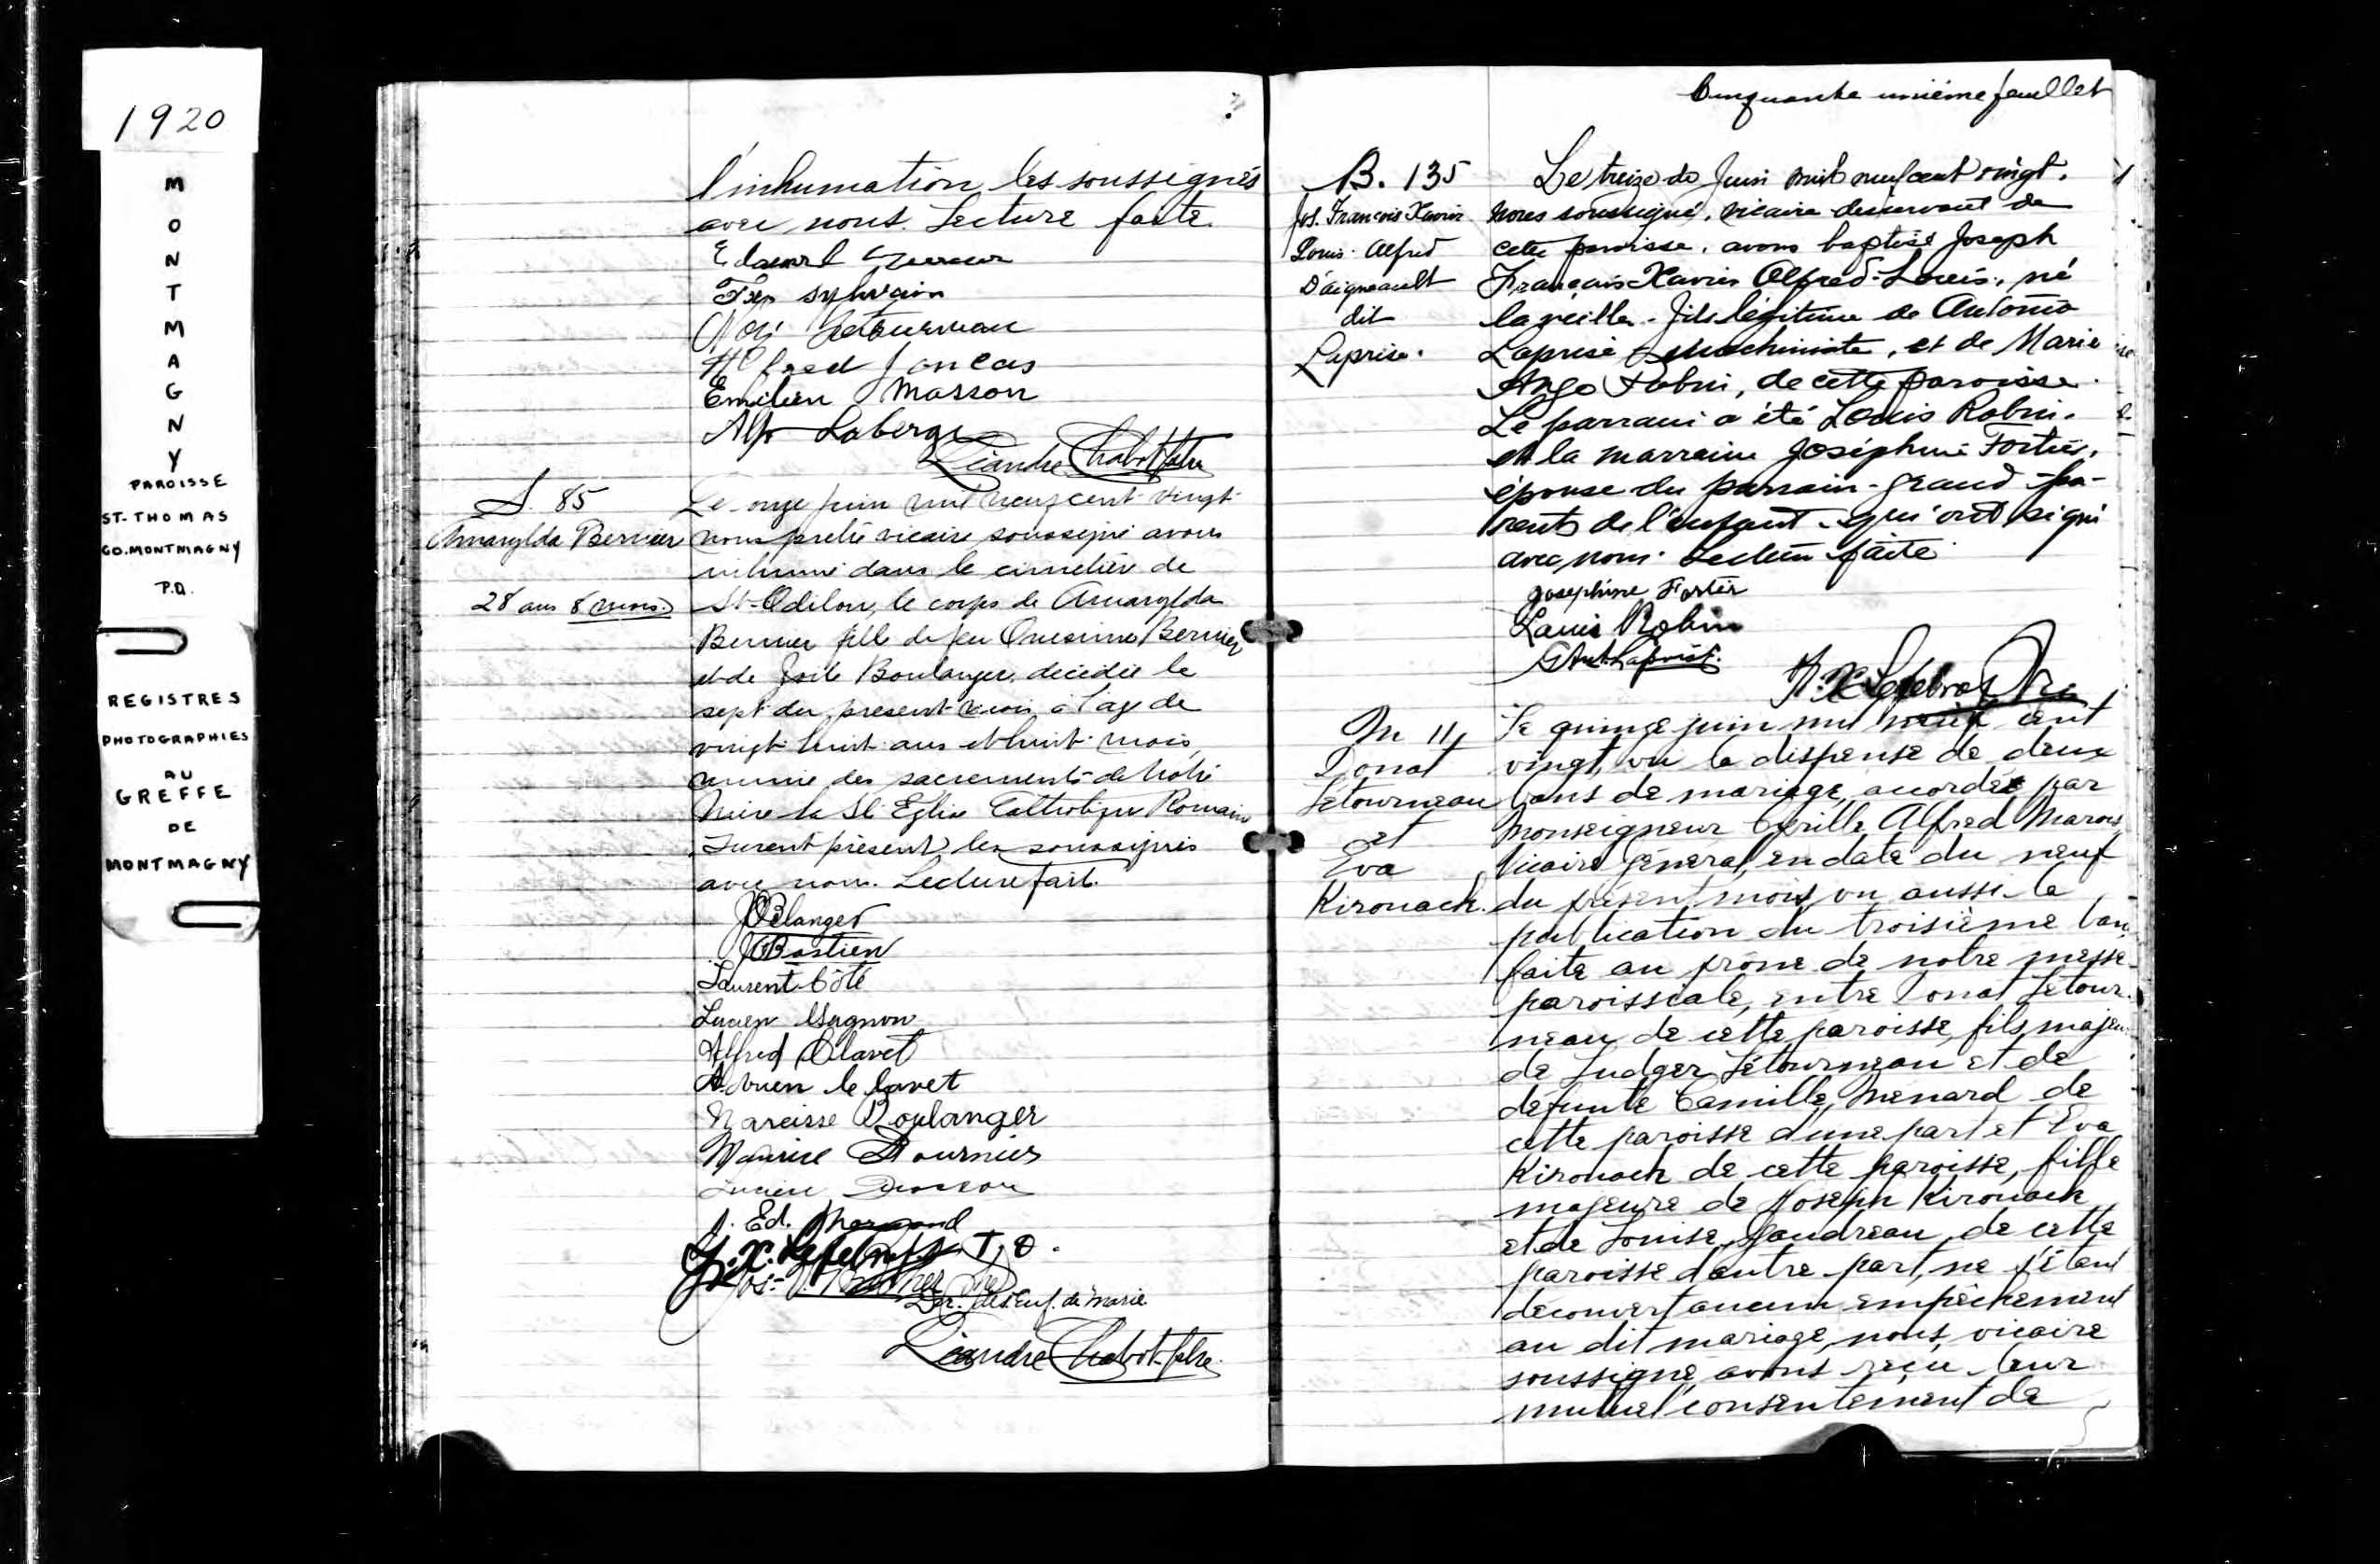 1920
MONTMAGNY
PAROISSE
ST-THOMAS
CO. MONTMAGNY
P.Q.
REGISTRES
PHOTOGRAPHIES
AU
GREFFE
DE
MONTMAGNY
l'inhumation, les soussignés
avec nous. Lecture faite.
Edouard
Frs Sylvain
Létourneau
Alfred Joncas
Emilien Masson
Alp Laberge
Léandre Chabot Ptre
S. 85
Amarylda Bernier
28 ans 8 mois.
Le onze juin mil neuf cent vingt
nous prêtre vicaire soussigné avons
inhumé dans le cimetière de
St-Odilon, le corps de Amarylda
Bernier fille de feu Onesime Bernier
et de Boulanger, décédée le
sept du présent mois à l'age de
vingt huit ans et huit mois,
munie des sacrements de Notre
Mère la Ste Eglise Catholique Romaine
Furent présents les soussignés
avec nous. Lecture fait.
JBélanger
Bastien
Laurent Côté
Lucien Gagnon
Alfred Clavet
Adrien le lavet
Narcisse Boulanger
Maurice Fournier
Lucien
J. Ed.
J. X. Lefebvre
Dir. des Enf. de Marie
Léandre Chabot Ptre.
Cinquante unième feuillet
B. 135
Jos. François Xavier
Louis Alfred
Daigneault
dit
Laprise.
Le treize de Juin mil neuf cent vingt.
nous soussigné, vicaire desservant de
cette paroisse, avons baptisé Joseph
François Xavier Alfred-Louis, né
la veille. fils légitime de Antonio
Laprise machiniste, et de Marie
Ange Robin, de cette paroisse.
Le parrain a été Louis Robin.
et la marraine Joséphine Fortier,
épouse du parrain-grand-pa-
rents de l'enfant qui ont signé
avec nous. Lecture faite
Josephine Fortier
Louis Robin
Ant. Laprise.
F. X. Lefebvre Ptre
M 11
Donat
Letourneau
et
Eva
Kirouack.
Le quinze juin mil neuf cent
vingt, vu la dispense de deux
bans de mariage, accordée par
Monseigneur Cyrille Alfred Marois
Vicaire Général, en date du neuf
du présent mois, vu aussi la
publication du troisième ban
faite au prône de notre messe
paroissiale, entre Donat Létour-
neau de cette paroisse, fils majeur
de Ludger Létourneau et de
défunte Camille Menard de
cette paroisse d'une part et Eva
Kirouack de cette paroisse, fille
majeure de Joseph Kirouack
et de Louise Gaudreau, de cette
paroisse d'autre part, ne s'étant
découvert aucun empêchement
au dit mariage, nous, vicaire
soussigné avons reçu leur
mutuel consentement de